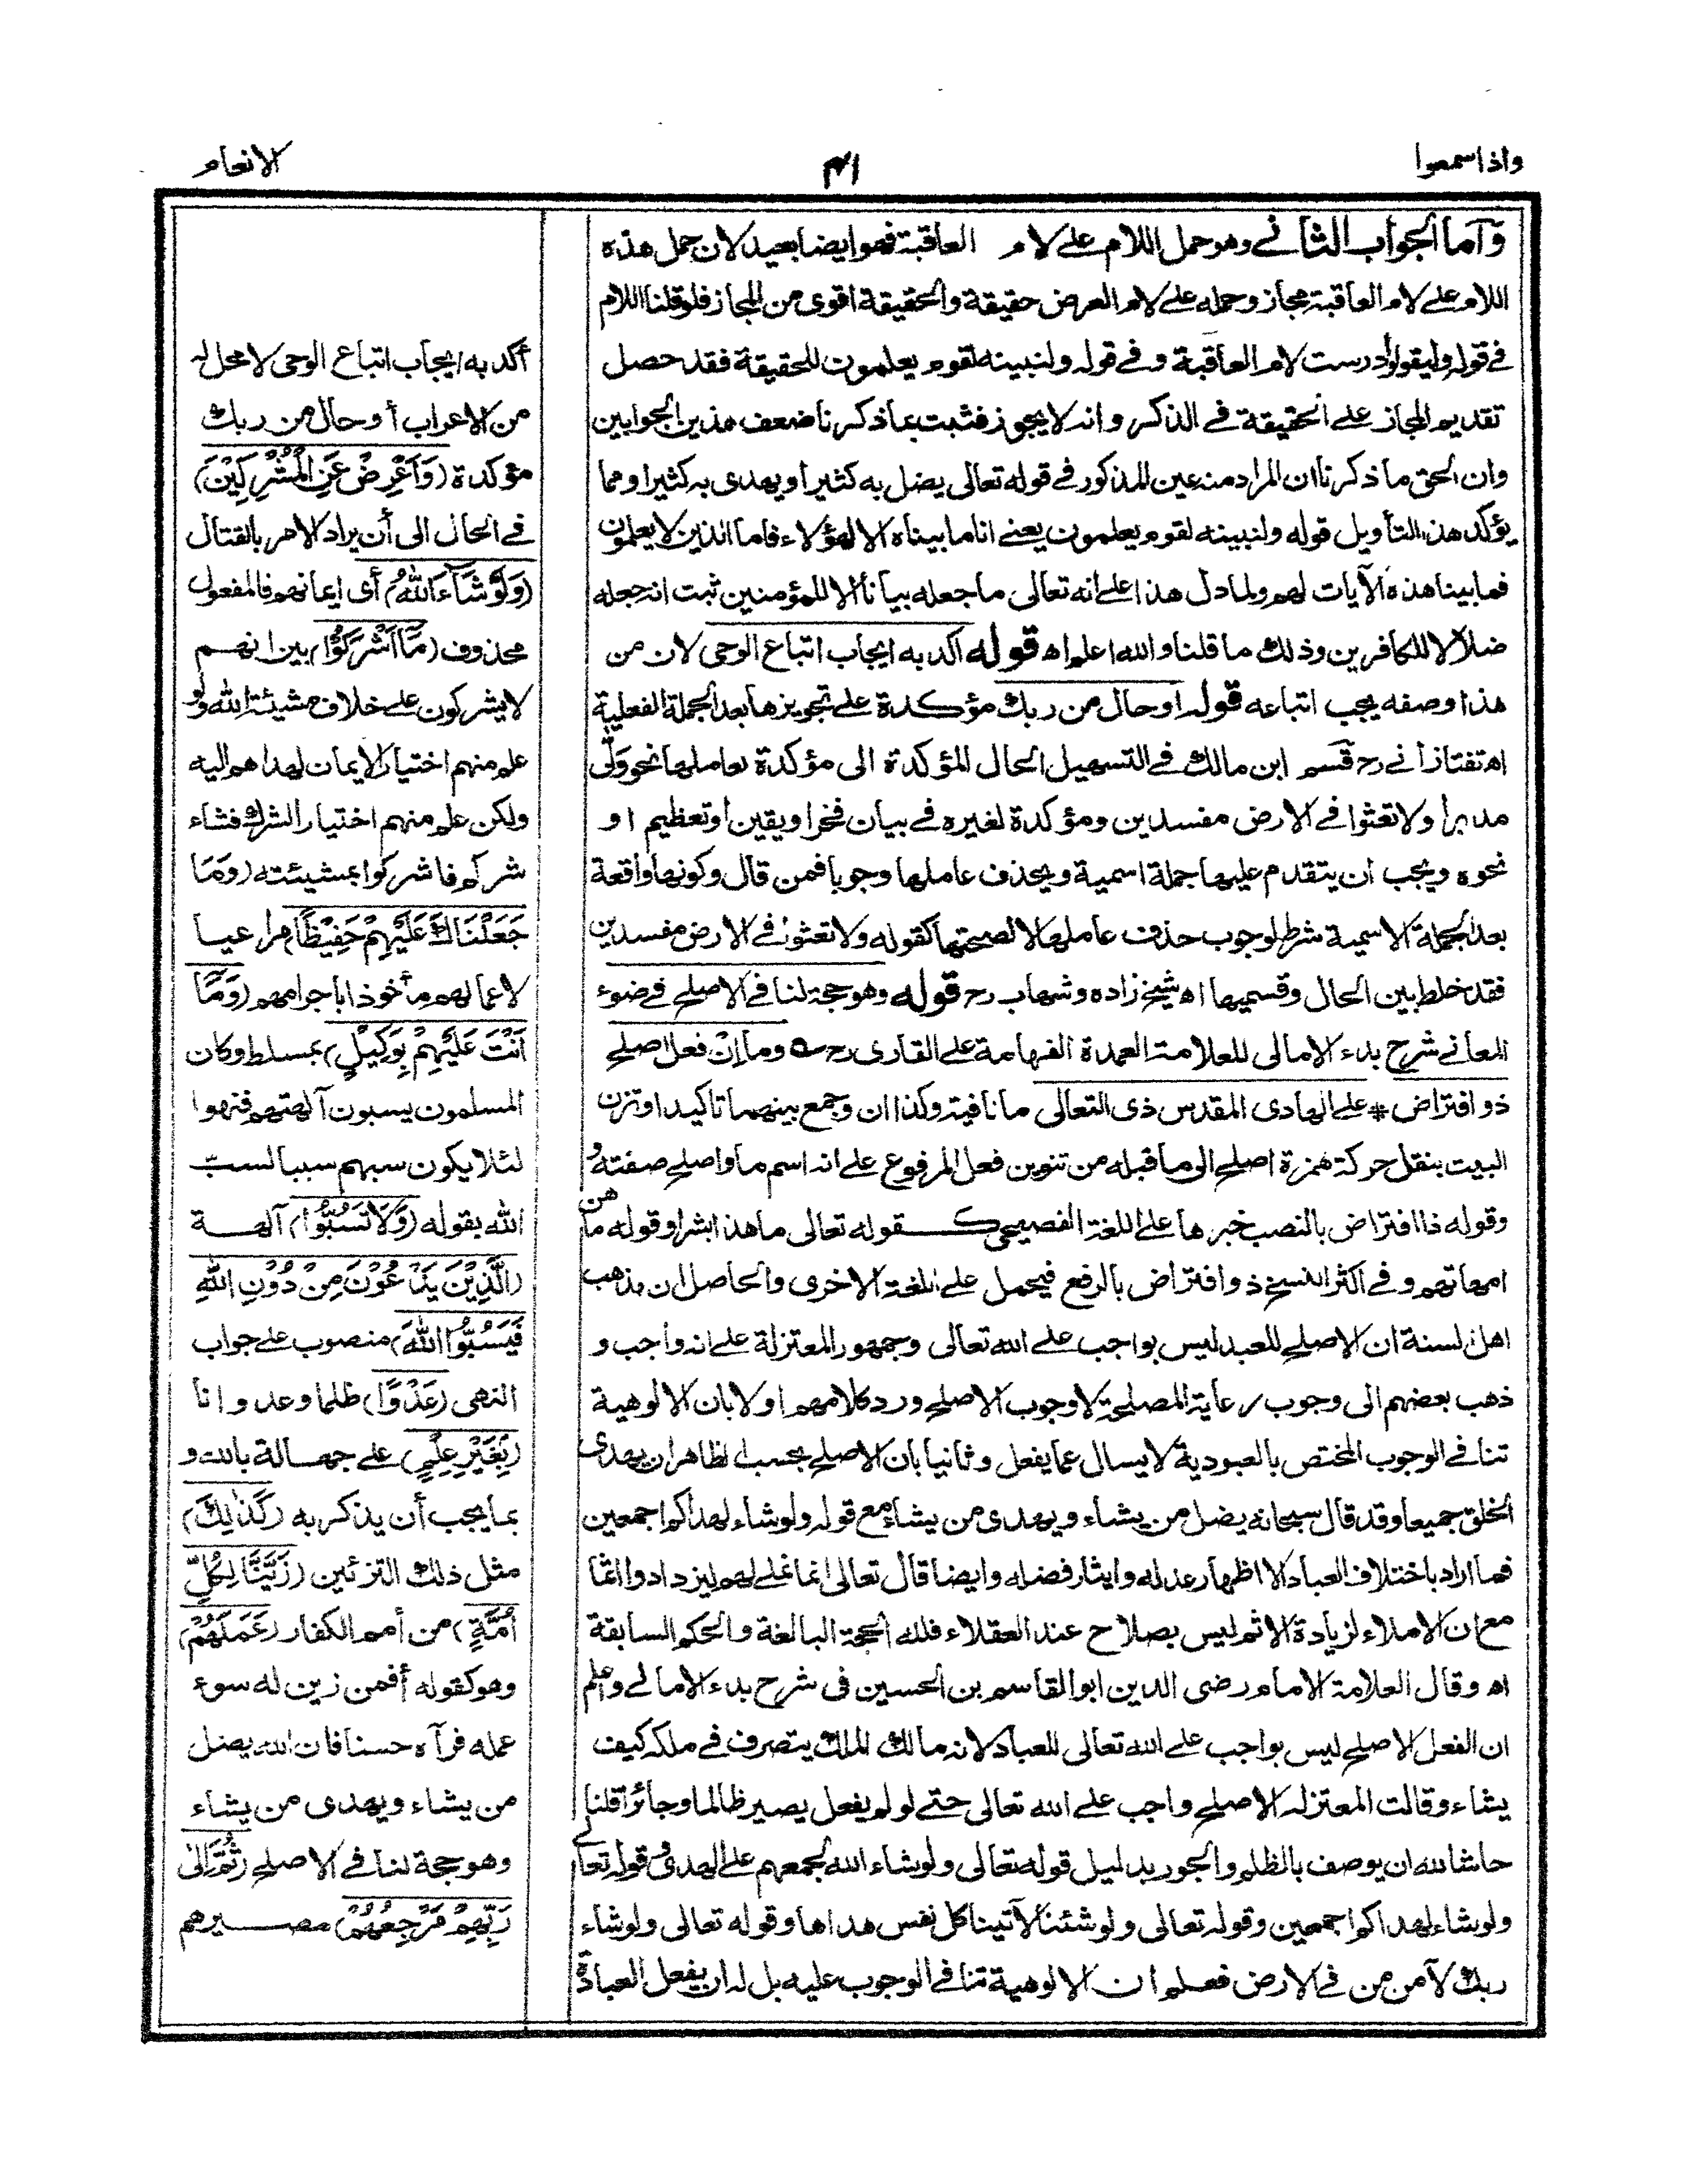 واذا سمعوا
٤١
الانعام
وأما الجواب الثاني وهو حمل اللام على لام العاقبة فهو ايضا بعيد لان حمل هذه
اللام على لام العاقبة مجاز وحمله على لام الغرض حقيقة والحقيقة اقوى من المجاز فلو قلنا اللام
في قوله وليقولوا درست لام العاقبة وفي قوله ولنبينه لقوم يعلمون للحقيقة فقد حصل
تقديم المجاز على الحقيقة في الذكر وانه لا يجوز فثبت بما ذكرنا ضعف هذين الجوابين
وان الحق ما ذكرنا ان المراد منه عين المذكور في قوله تعالى يضل به كثيرا ويهدى به كثيرا ومما
يؤكد هذا التأويل قوله ولنبينه لقوم يعلمون يعنى انا ما بيناه الا لهؤلاء فاما الذين لا يعلمون
فما بينا هذه الآيات لهم ولما دل هذا على انه تعالى ما جعله بيانا الا للمؤمنين ثبت انه جعله
ضلالا للكافرين وذلك ما قلنا والله اعلم اه قوله اكد به ايجاب اتباع الوحى لان من
هذا وصفه يجب اتباعه قوله او حال من ربك مؤكدة على تجويزها بعد الجملة الفعلية
اه تفتازانى رح قسم ابن مالك فى التسهيل الحال المؤكدة الى مؤكدة لعاملها نحو ولى
مدبرا ولا تعثوا في الارض مفسدين ومؤكدة لغيره فى بيان فخرا ويقين او تعظيم او
نحوه ويجب ان يتقدم عليها جملة اسمية ويحذف عاملها وجوبا فمن قال وكونها واقعة
بعد الجملة الاسمية شرط لوجوب حذف عاملها لا لصحتها كقوله ولا تعثوا فى الارض مفسدين
فقد خلط بين الحال وقسميها اه شيخ زاده وشهاب رح قوله وهو حجة لنا فى الاصلح فى ضوء
المعانى شرح بدء الامالى للعلامة العمدة الفهامة على القارى رح وما ان فعل اصلح
ذو افتراض * على الهادى المقدس ذى التعالى ما نافية وكذا ان وجمع بينهما تاكيدا وتزن
البيت بنقل حركة همزة اصلح الى ما قبله من تنوين فعل المرفوع على انه اسم ما واصلح صفته و
وقوله ذا افتراض بالنصب خبرها على اللغة الفصيحى كقوله تعالى ما هذا بشرا وقوله ما هن
امهاتهم وفى اكثر النسخ ذو افتراض بالرفع فيحمل على اللغة الاخرى والحاصل ان مذهب
اهل السنة ان الاصلح للعبد ليس بواجب على الله تعالى وجمهور المعتزلة على انه واجب و
ذهب بعضهم الى وجوب رعاية المصلحة لا وجوب الاصلح ورد كلامهم اولا بان الالوهية
تنافى الوجوب المختص بالعبودية لا يسال عما يفعل وثانيا بان الاصلح بحسب الظاهر ان يهدى
الخلق جميعا وقد قال سبحانه يضل من يشاء ويهدى من يشاء مع قوله ولو شاء لهداكم اجمعين
فما اراد باختلاف العباد الا اظهار عدله وايثار فضله وايضا قال تعالى انما نملى لهم ليزدادوا اثما
مع ان الاملاء لزيادة الاثم ليس بصلاح عند العقلاء فلله الحجة البالغة والحكم السابقة
اه وقال العلامة الامام رضى الدين ابو القاسم بن الحسين فى شرح بدء الامالى واعلم
ان الفعل الاصلح ليس بواجب على الله تعالى للعباد لانه مالك الملك يتصرف فى ملكه كيف
يشاء وقالت المعتزله الاصلح واجب على الله تعالى حتى لو لم يفعل يصير ظالما وجائرا قلنا
حاشا لله ان يوصف بالظلم والجور بدليل قوله تعالى ولو شاء الله لجمعهم على الهدى وقوله تعالى
ولو شاء لهداكم اجمعين وقوله تعالى ولو شئنا لآتينا كل نفس هداها وقوله تعالى ولو شاء
ربك لآمن من فى الارض فعلم ان الالوهية تنافى الوجوب عليه بل له ان يفعل العبادة
أكد به ايجاب اتباع الوحى لا محل له
من الاعراب أو حال من ربك
مؤكدة (وَاَعْرِضْ عَنِ الْمُشْرِكِيْنَ)
فى الحال الى أن يراد الامر بالقتال
(وَلَوْ شَآءَ اللهُ) أى ايمانهم فالمفعول
محذوف (مَآ اَشْرَكُوْا) بين انهم
لا يشركون على خلاف مشيئة الله ولو
علم منهم اختيار الايمان لهداهم اليه
ولكن علم منهم اختيار الشرك فشاء
شركهم فاشركوا بمشيئته (وَمَا
جَعَلْنَاكَ عَلَيْهِمْ حَفِيْظًا) مراعيا
لاعمالهم مأخوذا باجرامهم (وَمَا
اَنْتَ عَلَيْهِمْ بِوَكِيْلٍ) بمسلط وكان
المسلمون يسبون آلهتهم فنهوا
لئلا يكون سبهم سببا لسبّ
الله بقوله (وَلَا تَسُبُّوا) آلهة
(الَّذِيْنَ يَدْعُوْنَ مِنْ دُوْنِ اللهِ
فَيَسُبُّوا اللهَ) منصوب على جواب
النهى (عَدْوًا) ظلما وعدوانا
(بِغَيْرِ عِلْمٍ) على جهالة بالله و
بما يجب أن يذكر به (كَذٰلِكَ)
مثل ذلك التزئين (زَيَّنَّا لِكُلِّ
اُمَّةٍ) من أمم الكفار (عَمَلَهُمْ)
وهو كقوله أفمن زين له سوء
عمله فرآه حسنا فان الله يضل
من يشاء ويهدى من يشاء
وهو حجة لنا فى الاصلح (ثُمَّ اِلٰى
رَبِّهِمْ مَّرْجِعُهُمْ) مصيرهم